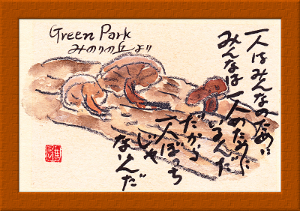 Green Park
みのりの丘より
一人はみんなのために
みんなは
一人のために
いるんだ
だから
一人ぼっち
じゃ
ないんだ